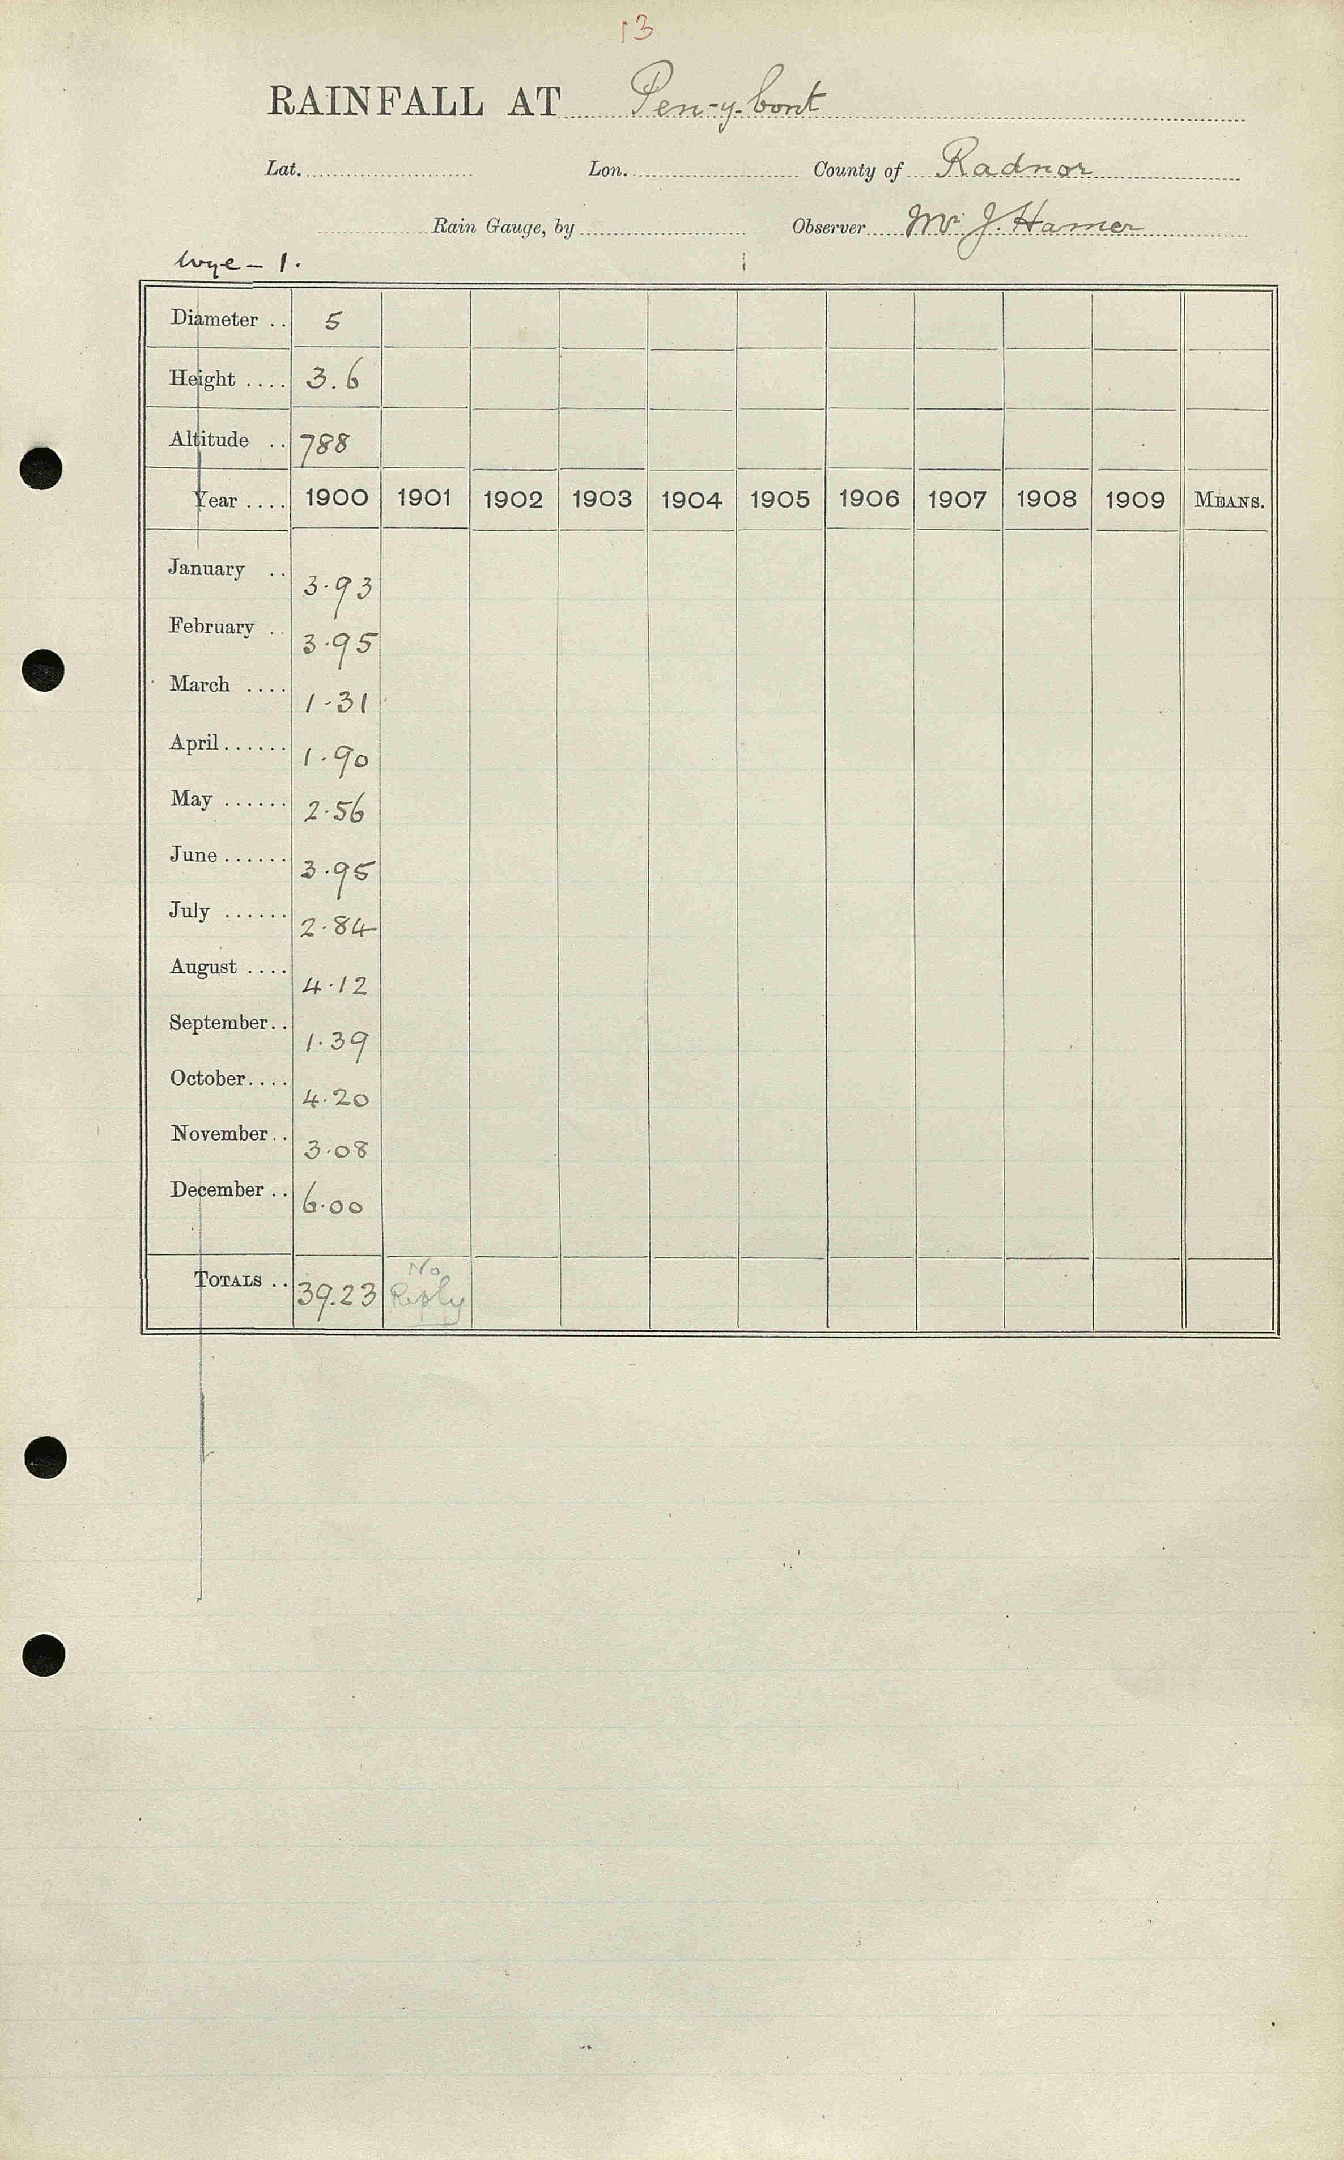 13
RAINFALL AT Pen-y-bont
Lat. Lon. County of Radnor
Rain Gauge, by Observer Mr. J. Hamer
Wye - 1.
Diameter .. 5
Height .... 3.6
Altitude .. 788
Year .... 1900 1901 1902 1903 1904 1905 1906 1907 1908 1909 MEANS.
January .. 3.93
February .. 3.95
March .... 1.31
April ...... 1.90
May ...... 2.56
June ...... 3.95
July ...... 2.84
August .... 4.12
September.. 1.39
October.... 4.20
November.. 3.08
December .. 6.00
TOTALS .. 39.23 No Reply